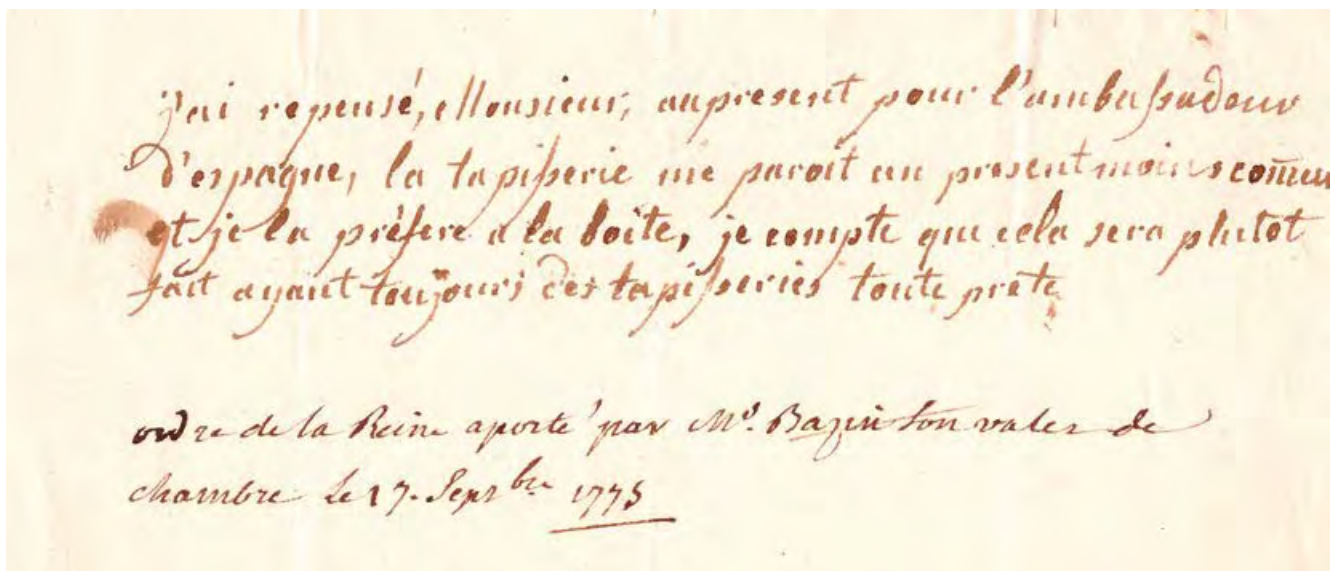 j'ai repensé, Monsieur, au present pour l'ambassadeur
d'espagne, la tapisserie me paroit un present moins com̄un
et je la préfere a la boîte, je compte que cela sera plutot
fait ayant toujours des tapisseries toute prete
ordre de la Reine aporté par Mr. Bazin son valet de
chambre le 17. Septbre 1775